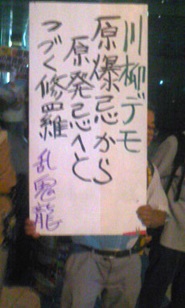 川柳デモ
原爆忌から
原発忌へと
つづく修羅
乱鬼龍